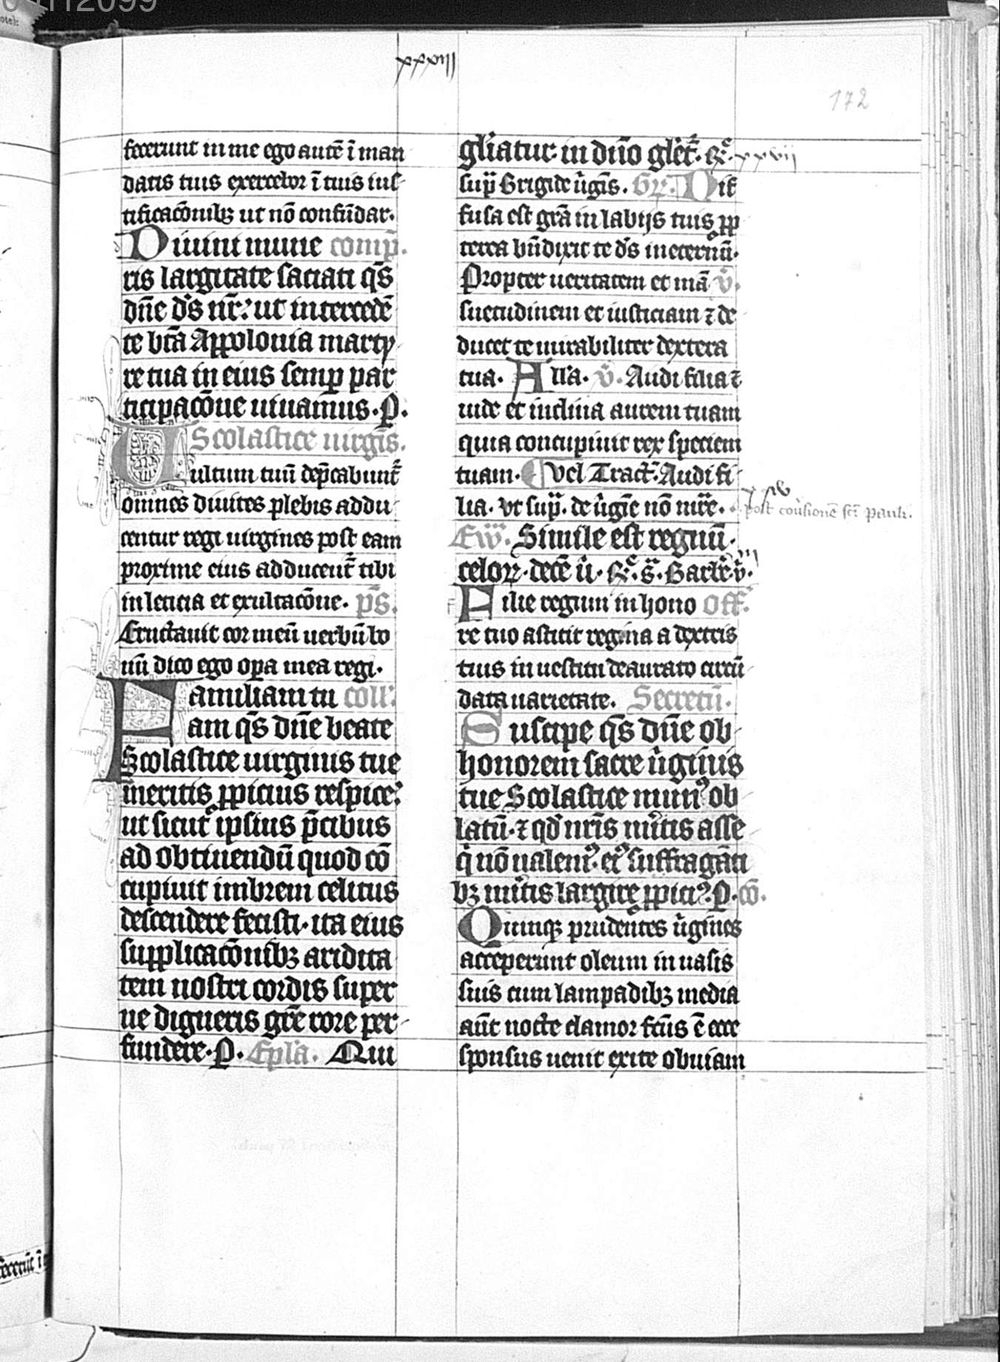 xxxiii
172
fecerunt in me ego autē ī man
datis tuis exercebor ī tuis ius
tificacōnibꝫ ut nō confūdar.
Diuini mune comp̄.
ris largitate saciati qs̄
dn̄e ds̄ nr̄: ut intercedē
te btā Appolonia marty
re tua in eius semp̄ par
ticipacōne uiuamus. P.
Scolastice uirgīs.
Vultum tuū dep̄cabunt᷑
omnes diuites plebis addu
centur regi uirgines post eam
proxime eius adducent᷑ tibi
in leticia et exultacōne. ps̄.
Eructauit cor meū uerbū bo
nū dico ego oꝑa mea regi.
Familiam tu coll̄.
am qs̄ dn̄e beate
Scolastice uirginis tue
meritis ꝓpicius respice:
ut sicut ipsius p̄cibus
ad obtinendū quod cō
cupiuit imbrem celitus
descendere fecisti. ita eius
supplicacōnibꝫ aridita
tem nostri cordis super
ne digneris grē rore per
fundere. P. Epl̄a. Qui
gl̄iatur in dn̄o gl̄et᷑. Rͦ. xxvij
sup̄ Brigide u̇gīs. Gr̄. Dif
fusa est grā in labijs tuis ꝓp
terea bn̄dixit te ds̄ ineternū.
Propter ueritatem et mā v̄.
suetudinem et iusticiam ⁊ de
ducet te mirabiliter dextera
tua. All̄a. v̄. Audi filia ⁊
uide et inclina aurem tuam
quia concupiuit rex speciem
tuam. Vel Tract. Audi fi
lia. vt sup̄. de u̇gīe nō mr̄e.
post cōu̇sionē sct̄i Pauli.
Ew̄. Simile est regnū
celoꝝ. decē u̇.
Filie regum in hono Off.
re tuo astitit regina a dextris
tuis in uestitu deaurato circū
data uarietate. Secretū.
Suscipe qs̄ dn̄e ob
honorem sacre u̇ginis
tue Scolastice mun᷒ ob
latū. ⁊ qd̄ nr̄is mītis asse
q̇ nō ualem᷒. ei᷒ suffragāti
bꝫ mītis largire ꝓpici᷒. P. cō.
Quinqꝫ prudentes u̇gines
acceperunt oleum in uasis
suis cum lampadibꝫ media
aūt nocte clamor fc̄us ē ecce
sponsus uenit exite obuiam